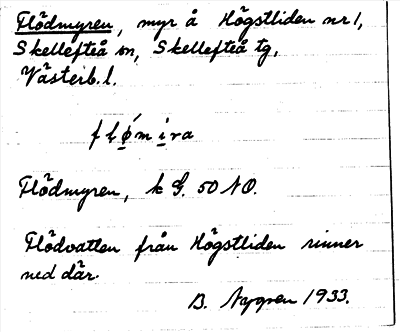 Flödmyren, myr å Högstliden nr 1,
Skellefteå sn, Skellefteå tg,
Västerb. l.
Flödmyren, k G. 50 NO.
Flödvatten från Högstliden rinner
ned där.
B. Nygren 1933.